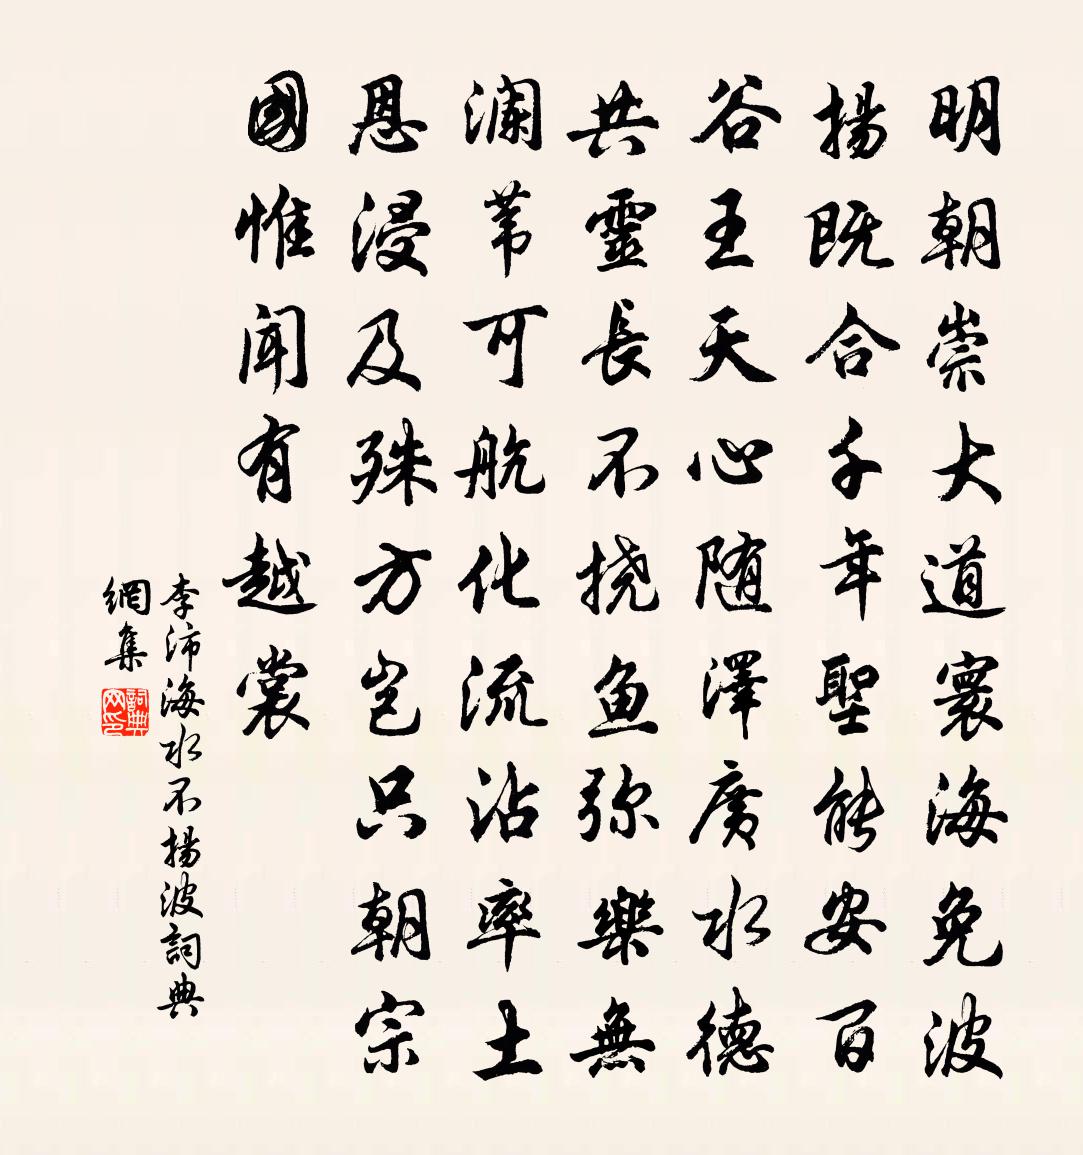 明朝崇大道寰海免波
揚既合千年聖能安百
谷王天心随澤廣水德
共靈長不挠鱼弥樂無
澜苇可航化流沾率土
恩浸及殊方岂只朝宗
國惟聞有越裳
李沛海水不揚波詞典
網集
詞典网印